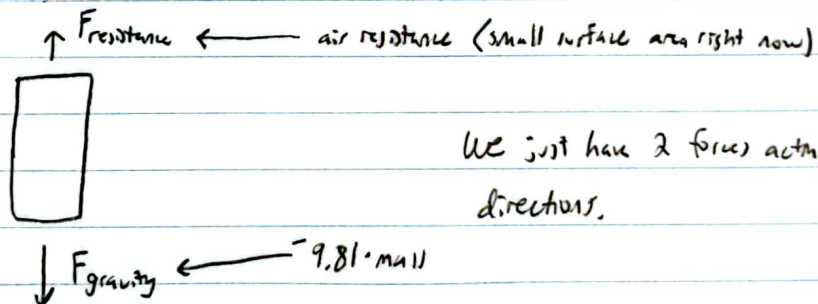 Fresistance ← air resistance (small surface area right now)
We just have 2 forces actin
directions.
Fgravity ← -9.81·mass